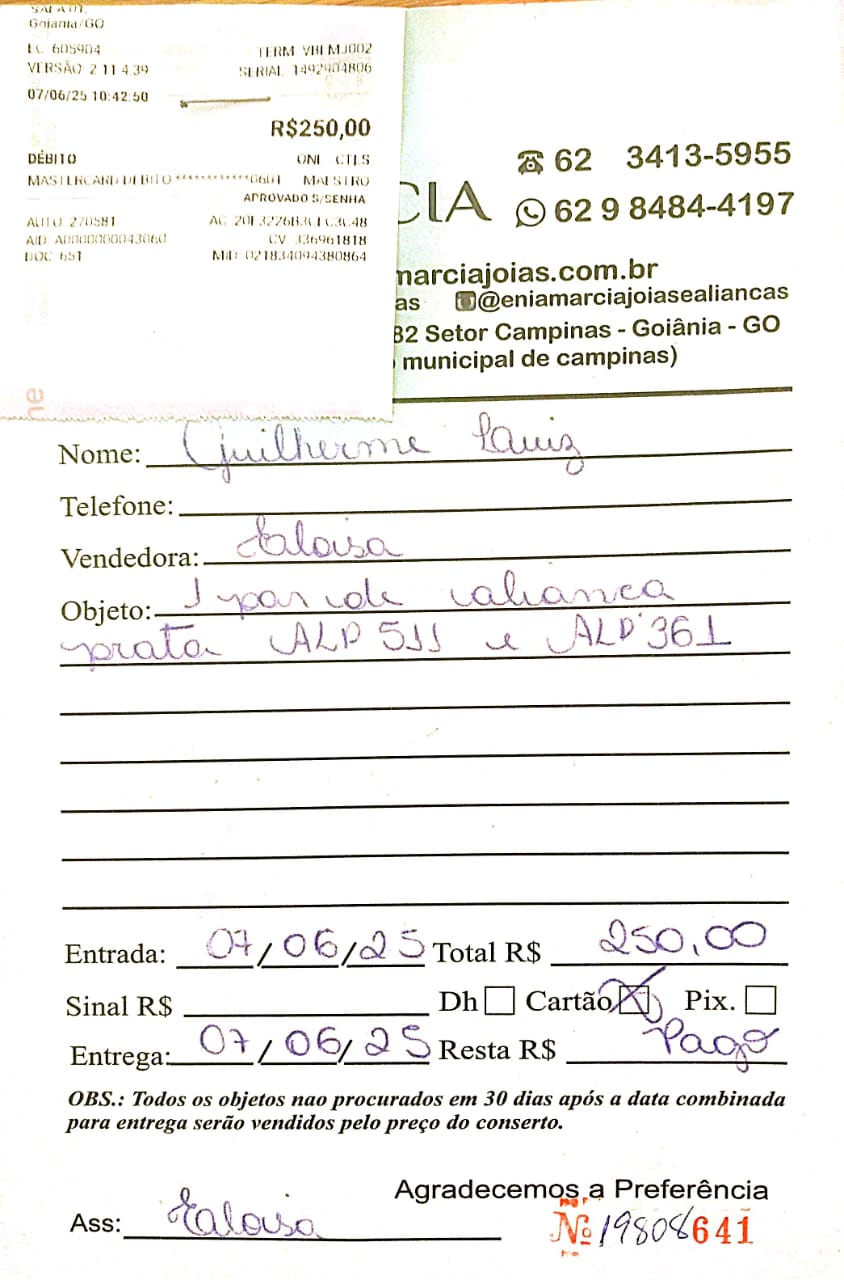 Goiania/GO
EC 605904 TERM VBEMJ002
VERSÃO 2 11 4 39 SERIAL 1492904806
07/06/25 10:42:50
R$250,00
DÉBITO ONL CTLS
MASTERCARD DEBITO ************0601 MAESTRO
APROVADO S/SENHA
AUTO 270581
AID A0000000043060 CV 336961818
DOC 651 MID 021834094380864
62 3413-5955
CIA 62 9 8484-4197
marciajoias.com.br
as @eniamarciajoiasealiancas
82 Setor Campinas - Goiânia - GO
municipal de campinas)
Nome: Guilherme Lauiz
Telefone:
Vendedora: Ealoisa
Objeto: 1 par de alianca
prata ALP 511 e ALP 361
Entrada: 07/06/25 Total R$ 250,00
Sinal R$ Dh Cartão X Pix.
Entrega: 07/06/25 Resta R$ Pago
OBS.: Todos os objetos nao procurados em 30 dias após a data combinada
para entrega serão vendidos pelo preço do conserto.
Agradecemos a Preferência
Ass: Ealoisa Nº 19808641